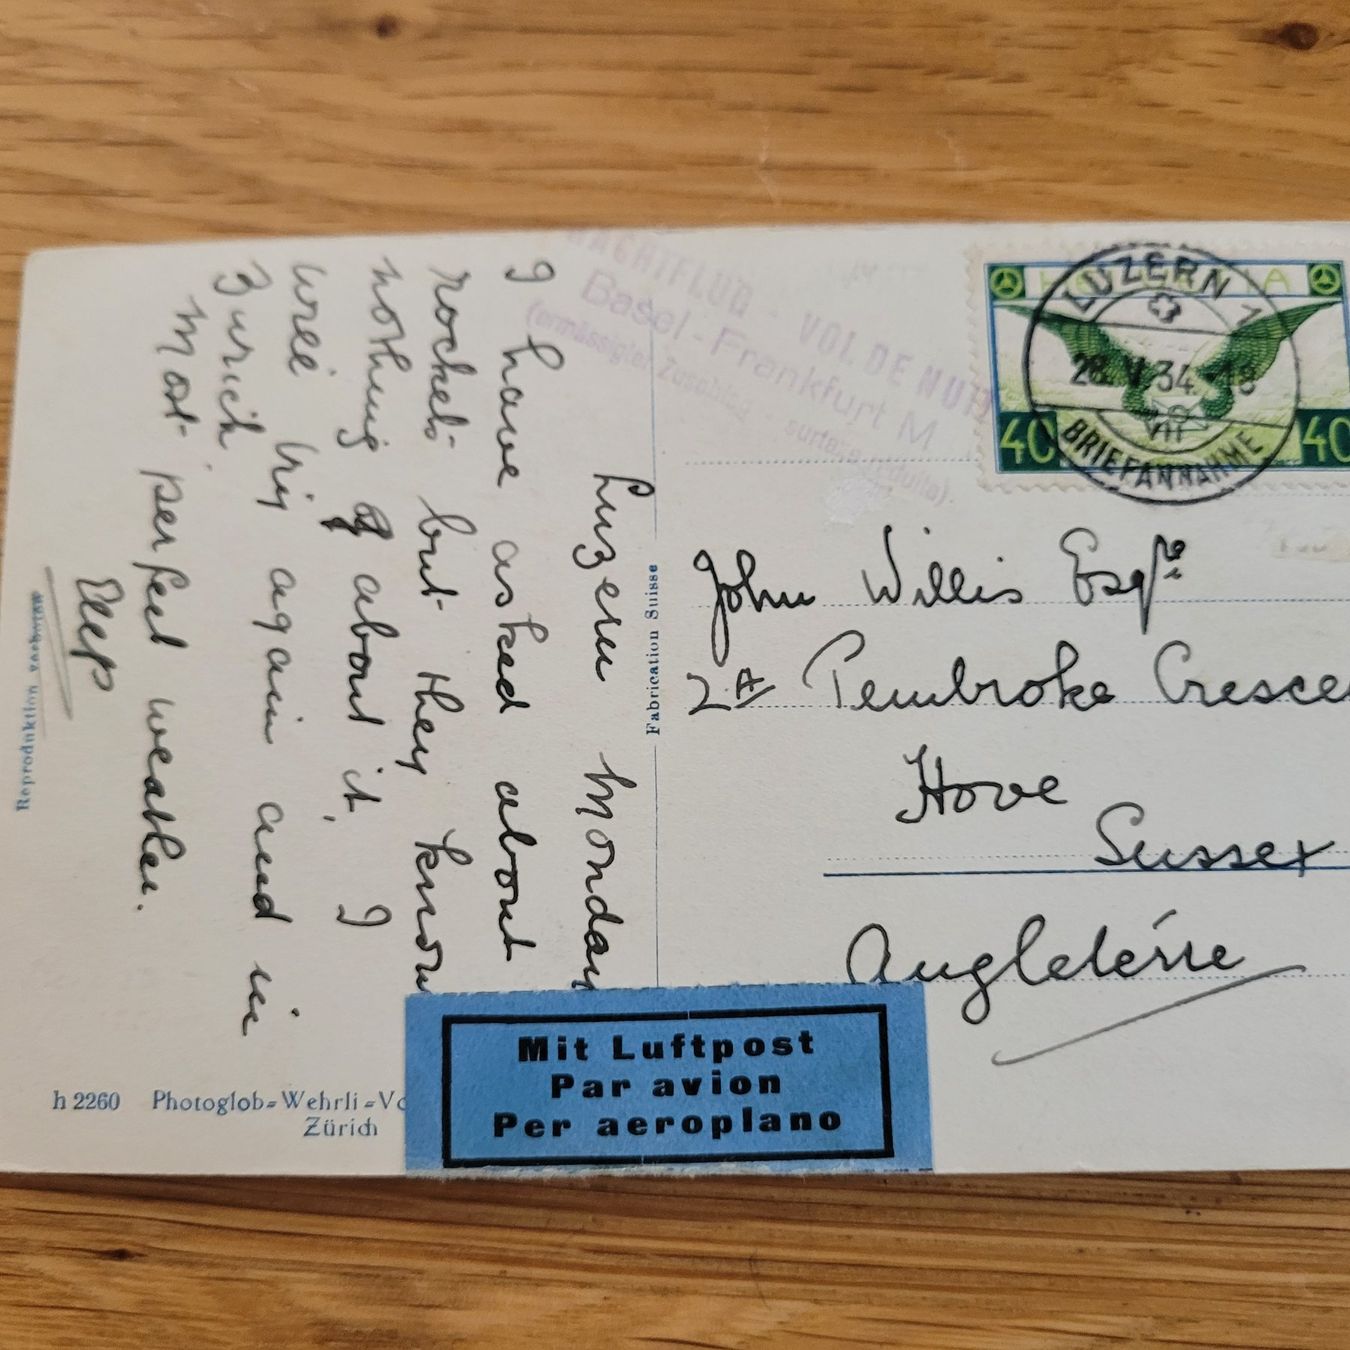 Luzern Monday
I have asked about
rocket but they know
nothing of about it, I
will try again and in
Zurich.
Most perfect weather.
NACHTFLUG - VOL DE NUIT
Basel-Frankfurt M
(ermässigter Zuschlag - surtaxe réduite).
HELVETIA
40 40
LUZERN 1
28. V. 34 - 18
VII
BRIEFANNAHME
John Willis Esqre
2 Pembroke Cresce
Hove
Sussex
Angleterre
Fabrication Suisse
Reproduktion verboten
h 2260 Photoglob-Wehrli-Vo
Zürich
Mit Luftpost
Par avion
Per aeroplano